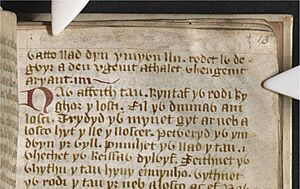 gatto llad dyn llad. rodet lỽ de
gỽyr a deu vgeint athalet vgeingeint
aryant.
Naỽ affeith tan. Kyntaf yỽ rodi ky
ghor y losci. Eil yỽ duunaỽ am
losci. Trydyd yỽ mynet gyt ar neb a
losco hyt y lle y llosger. Petweryd yỽ ym
dỽyn yr ryll. Pymhet yỽ llad y tan.
chỽechet yỽ keissaỽ dylỽyf. Seithuet yỽ
chỽythu y tan hyny enynho. ỽythuet
yỽ rodi y tan yr neb a losco